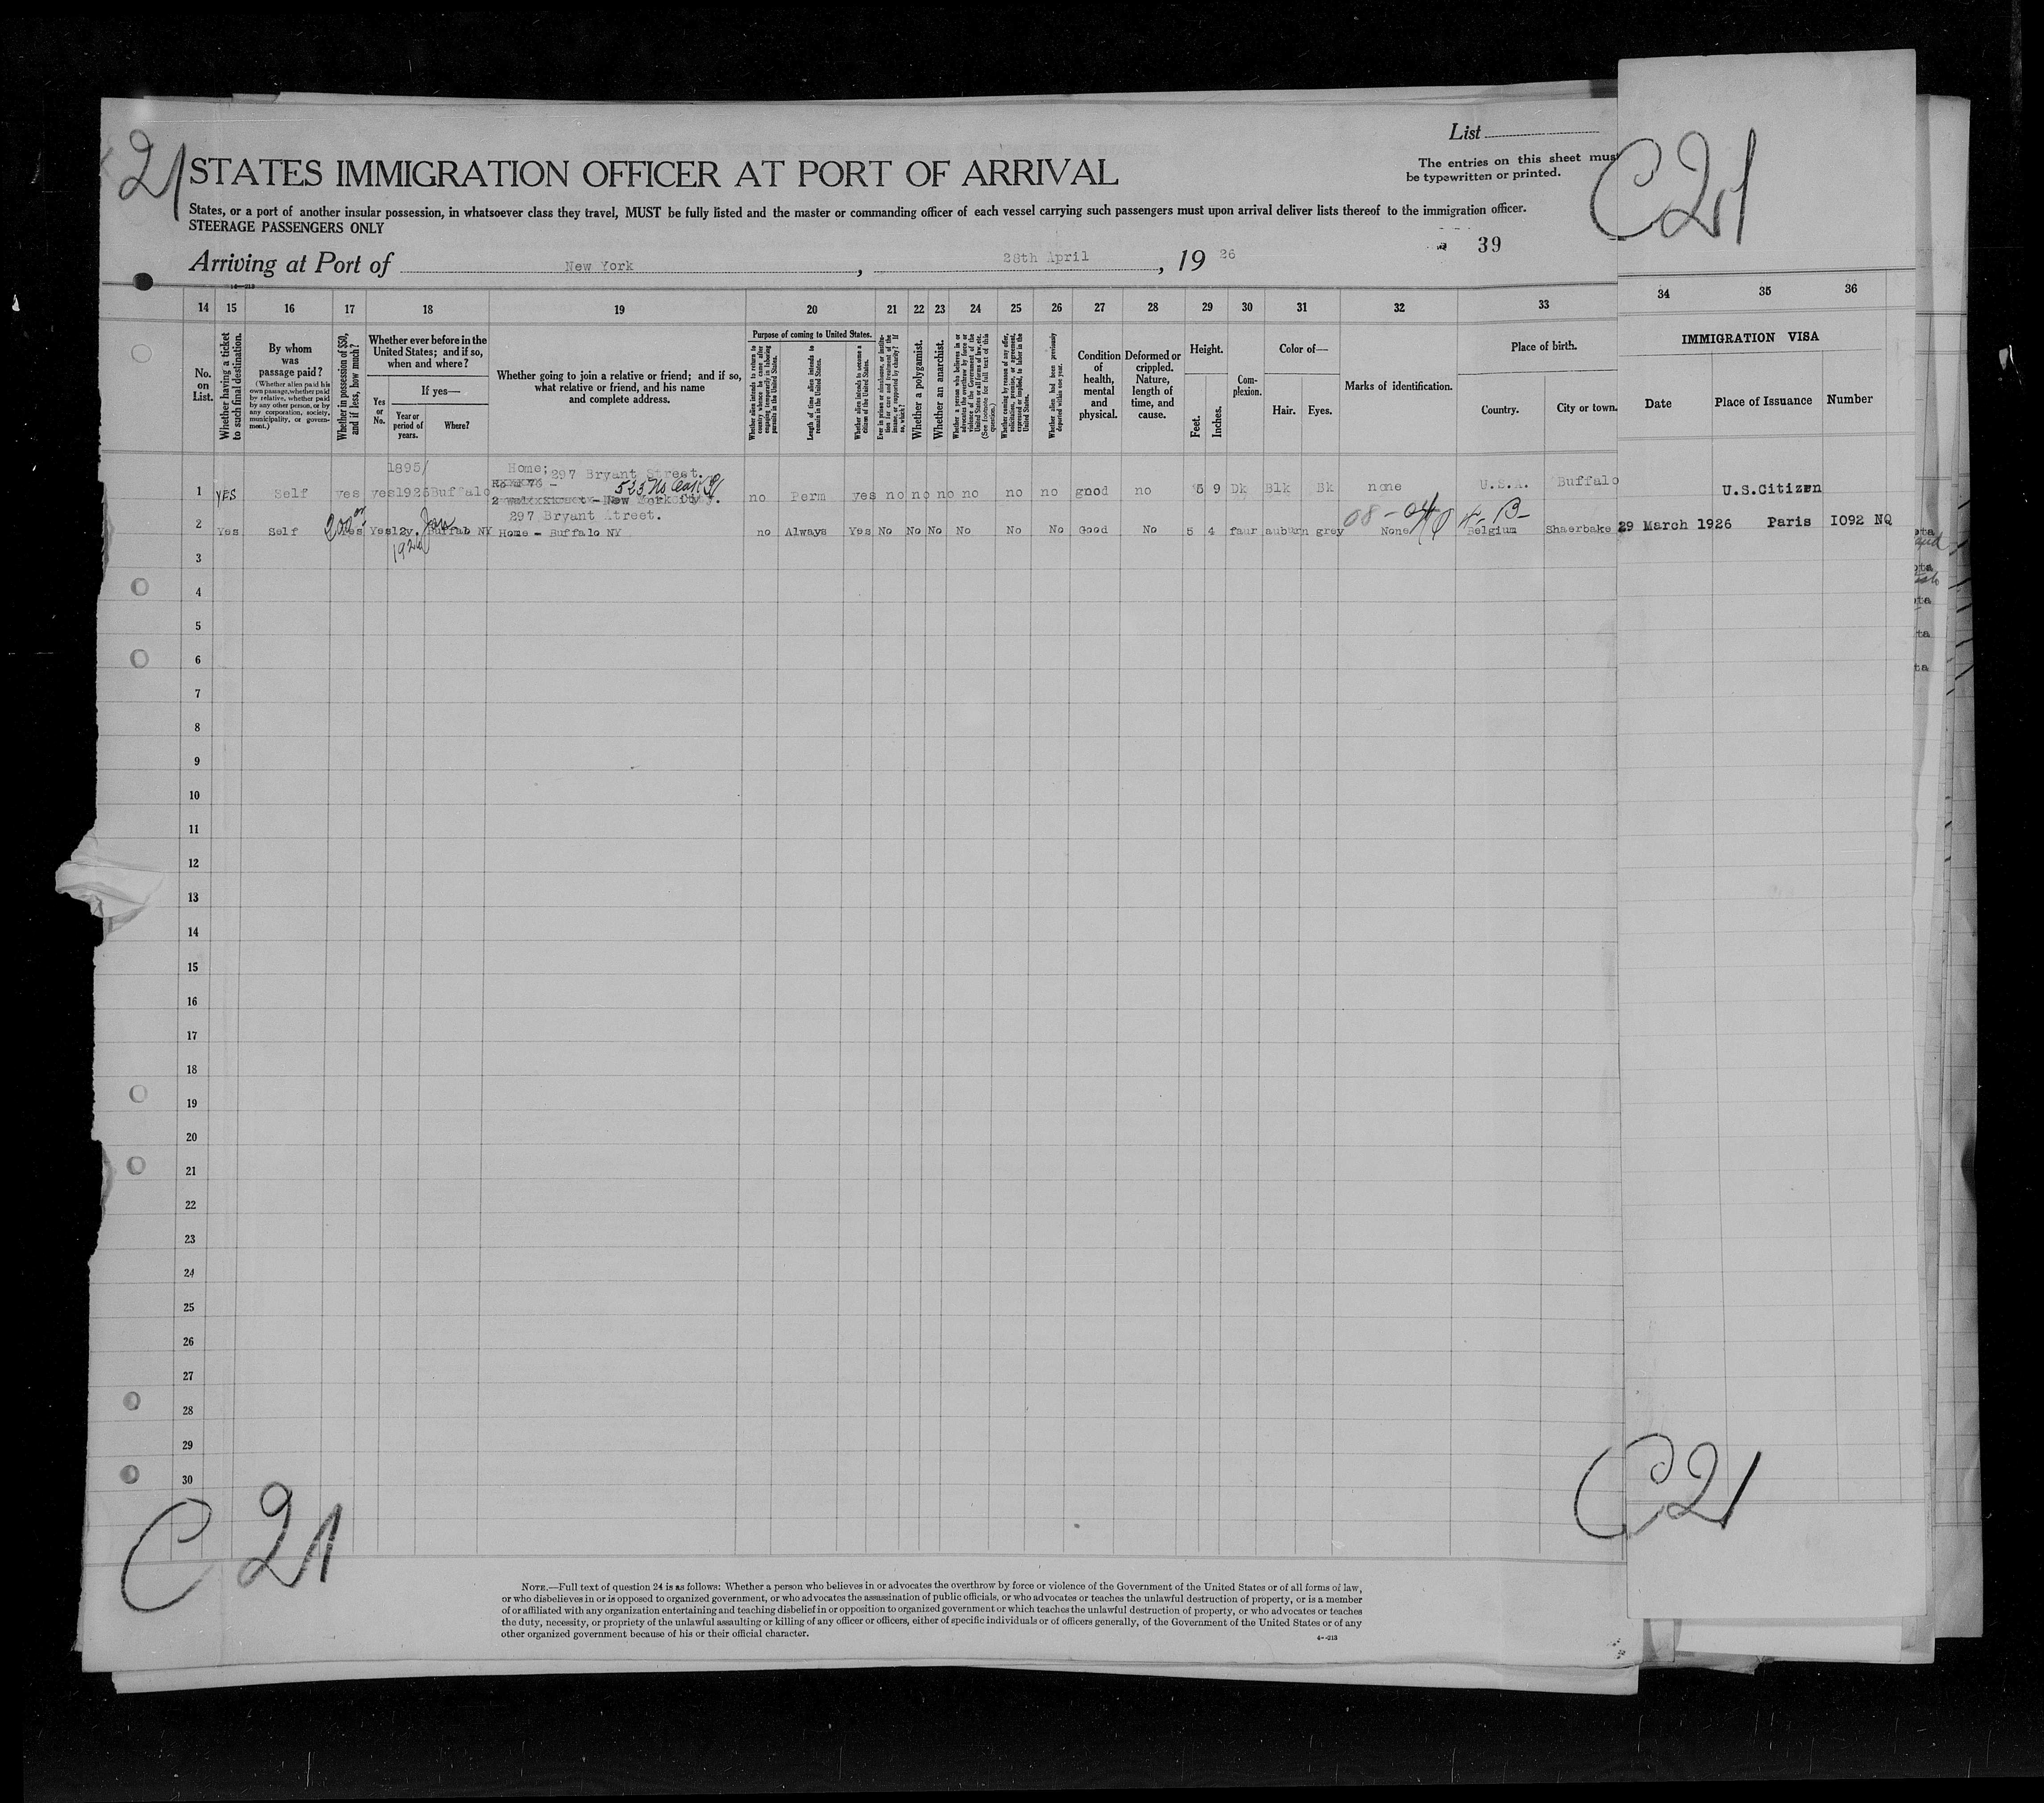 21
C21
List
STATES IMMIGRATION OFFICER AT PORT OF ARRIVAL
The entries on this sheet must
be typewritten or printed.
States, or a port of another insular possession, in whatsoever class they travel, MUST be fully listed and the master or commanding officer of each vessel carrying such passengers must upon arrival deliver lists thereof to the immigration officer.
STEERAGE PASSENGERS ONLY
39
Arriving at Port of New York, 28th April, 19 26
14 15 16 17 18 19 20 21 22 23 24 25 26 27 28 29 30 31 32 33 34 35 36
No. on List.
Whether having a ticket to such final destination.
By whom was passage paid?
(Whether alien paid his own passage, whether paid by relative, whether paid by any other person, or by any corporation, society, municipality, or government.)
Whether in possession of $50, and if less, how much?
Whether ever before in the United States; and if so, when and where?
Yes or No.
If yes—
Year or period of years.
Where?
Whether going to join a relative or friend; and if so, what relative or friend, and his name and complete address.
Purpose of coming to United States.
Whether alien intends to return to country whence he came after engaging temporarily in laboring pursuits in the United States.
Length of time alien intends to remain in the United States.
Whether alien intends to become a citizen of the United States.
Ever in prison or almshouse, or institution for care and treatment of the insane, or supported by charity? If so, which?
Whether a polygamist.
Whether an anarchist.
Whether a person who believes in or advocates the overthrow by force or violence of the Government of the United States or all forms of law, etc. (See footnote for full text of this question.)
Whether coming by reason of any offer, solicitation, promise, or agreement, expressed or implied, to labor in the United States.
Whether alien had been previously deported within one year.
Condition of health, mental and physical.
Deformed or crippled. Nature, length of time, and cause.
Height.
Feet.
Inches.
Complexion.
Color of—
Hair.
Eyes.
Marks of identification.
Place of birth.
Country.
City or town.
IMMIGRATION VISA
Date
Place of Issuance
Number
1895/ Home; 297 Bryant Street.
1 YES Self yes yes 1925 Buffalo New York City. no Perm yes no no no no no no good no 5 9 Dk Blk Bk none U.S.A. Buffalo U.S.Citizen
297 Bryant Atreet.
2 Yes Self Yes Yes 12y. Buffalo NY Home - Buffalo NY no Always Yes No No No No No No Good No 5 4 faur auburn grey None Belgium Shaerbake 29 March 1926 Paris 1092 NQ
3
4
5
6
7
8
9
10
11
12
13
14
15
16
17
18
19
20
21
22
23
24
25
26
27
28
29
30
C 21
C21
NOTE.—Full text of question 24 is as follows: Whether a person who believes in or advocates the overthrow by force or violence of the Government of the United States or of all forms of law,
or who disbelieves in or is opposed to organized government, or who advocates the assassination of public officials, or who advocates or teaches the unlawful destruction of property, or is a member
of or affiliated with any organization entertaining and teaching disbelief in or opposition to organized government or which teaches the unlawful destruction of property, or who advocates or teaches
the duty, necessity, or propriety of the unlawful assaulting or killing of any officer or officers, either of specific individuals or of officers generally, of the Government of the United States or of any
other organized government because of his or their official character.